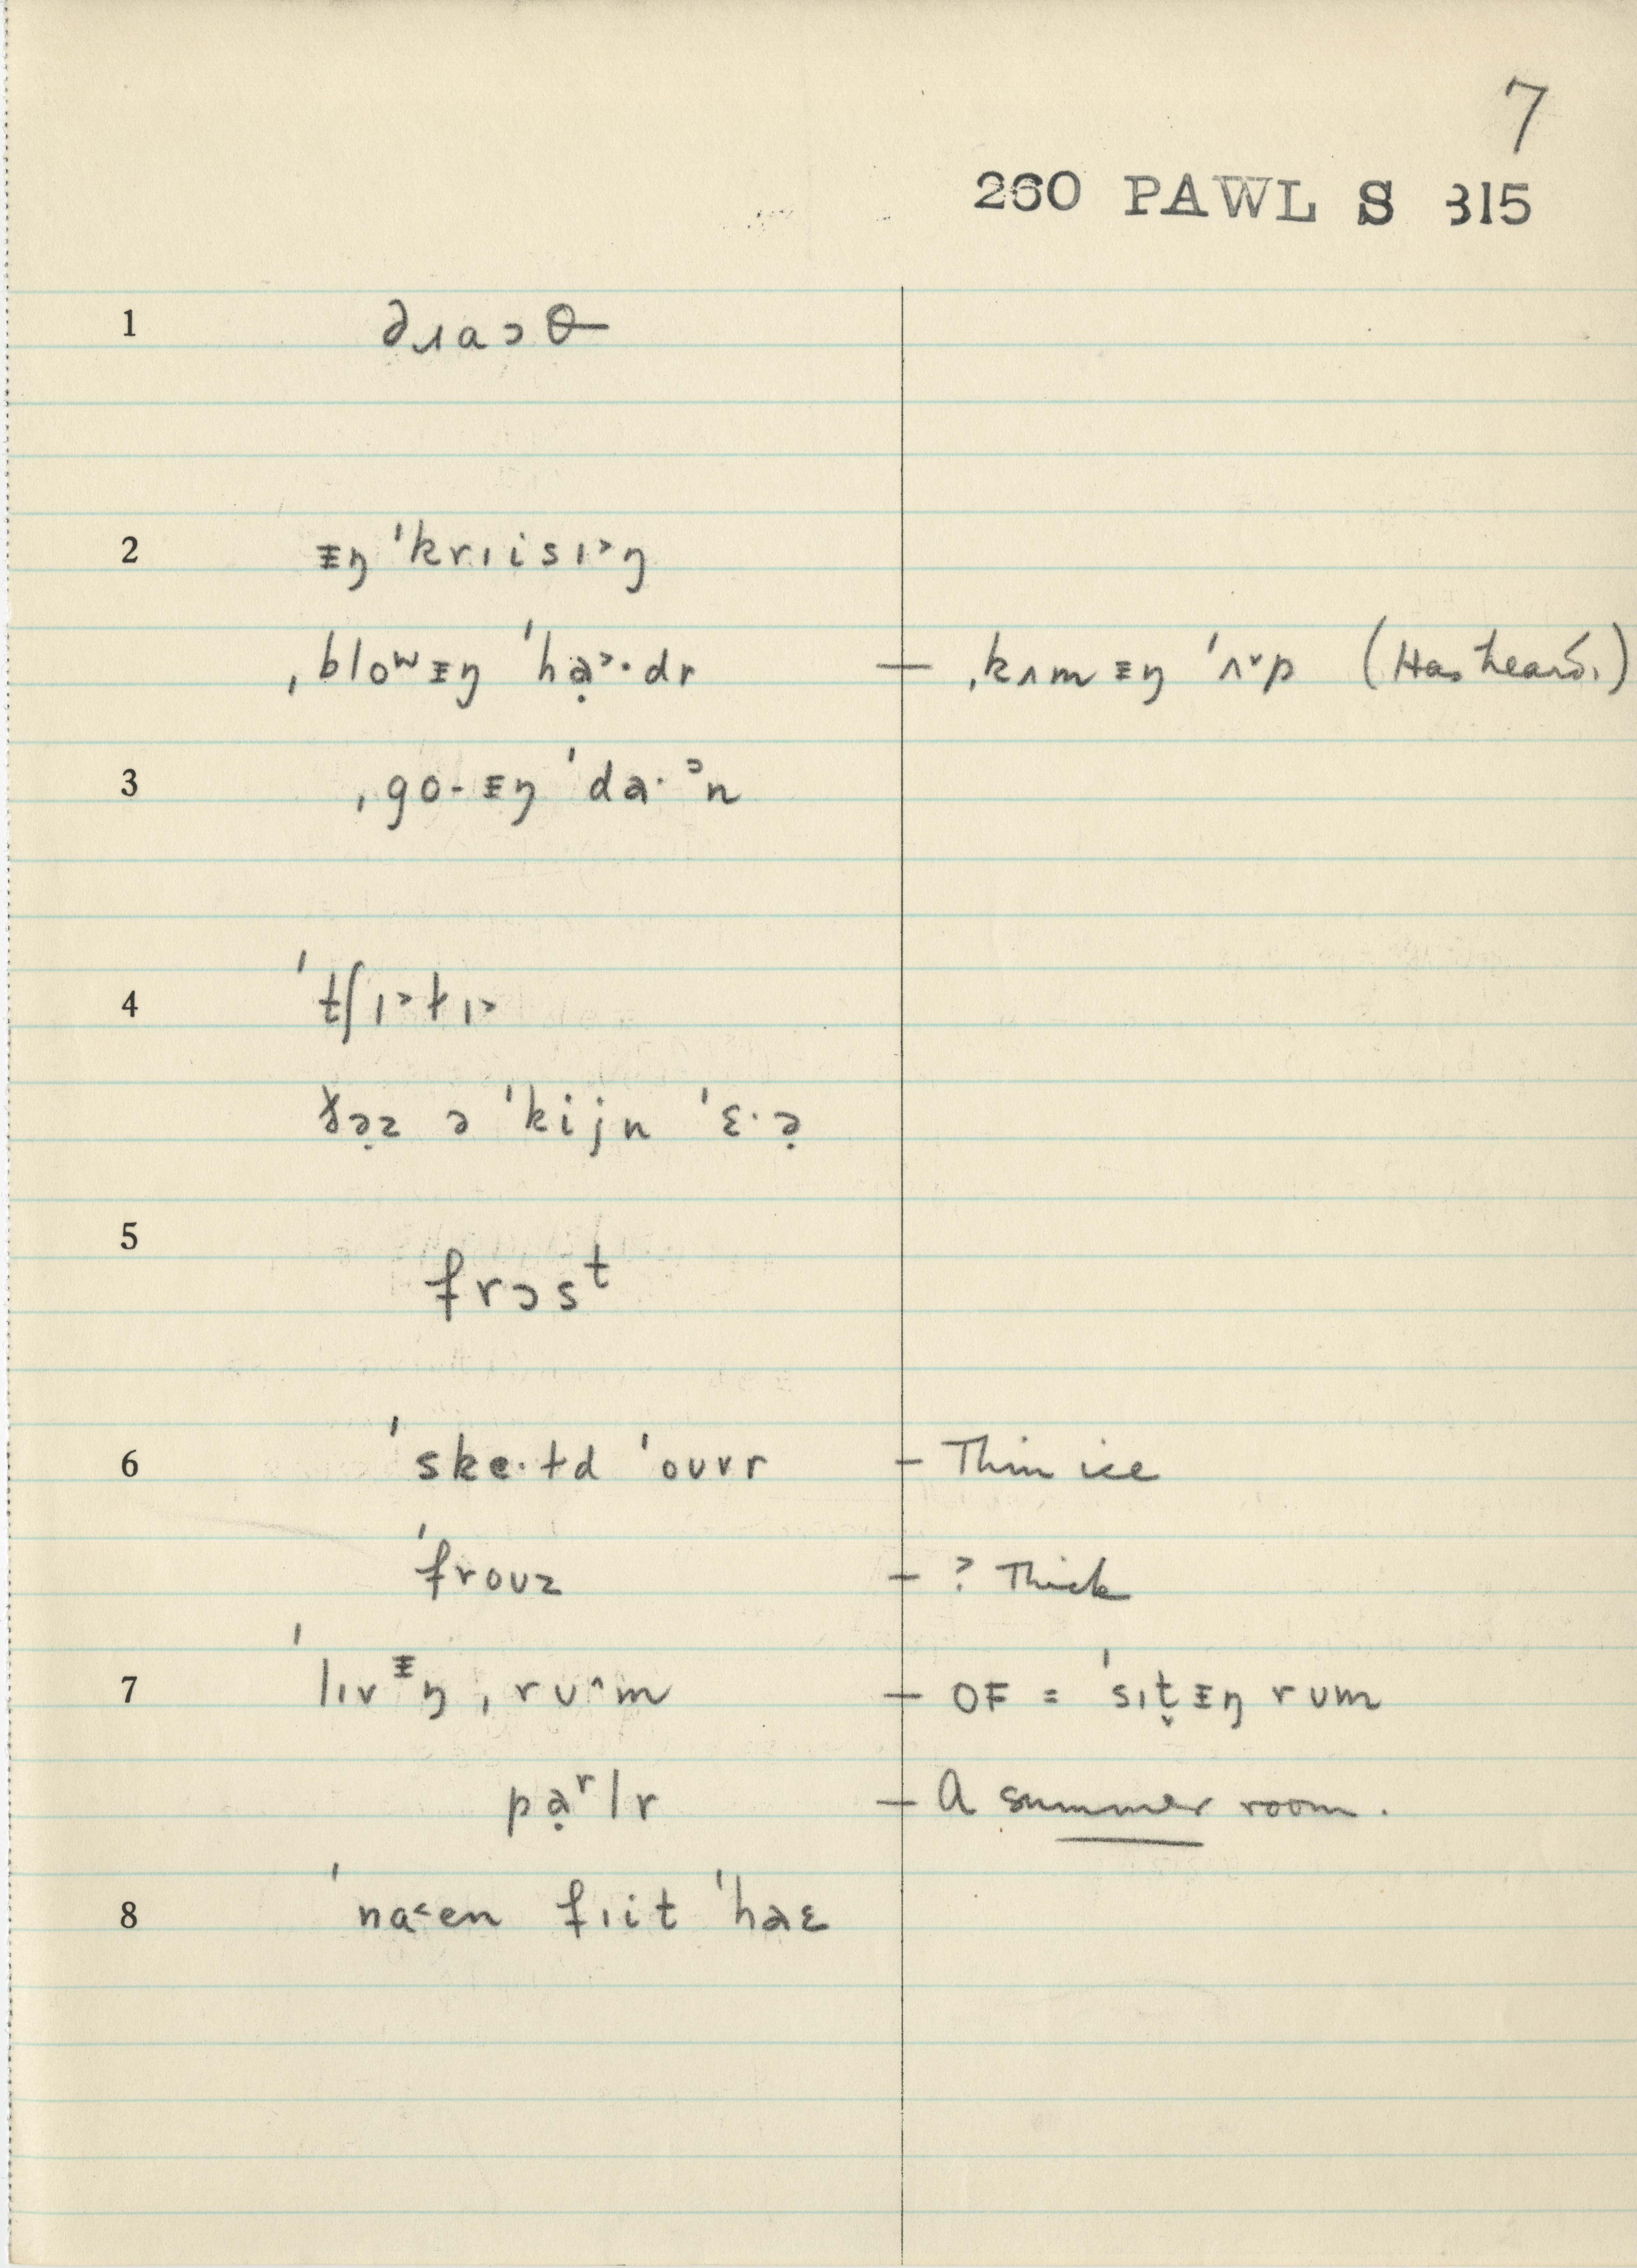 7
260 PAWL S 315
1 ∂ɹaɔθ
2 ᵻŋ ˈkrɪisɪ˃ŋ
ˌbloʷᵻŋ ˈhạ˃·dr — ˌkʌmᵻŋ ˈʌ˅p (Has heard.)
3 ˌgo·ᵻŋ ˈda·ᵓn
4 ˈtʃɪ˃ɫɪ˃
ðə̣z ə ˈkijn ˈɛ·ə̣
5 frɔsᵗ
6 ˈske·ɫd ˈouvr – Thin ice
ˈfrouz – ? Thick
7 ˈlɪvᵻŋ ˌrʊ^m – OF = ˈsɪt̬ᵻŋ rʊm
pạʳlr – A summer room.
8 ˈna˂en fɪit ˈhaɛ